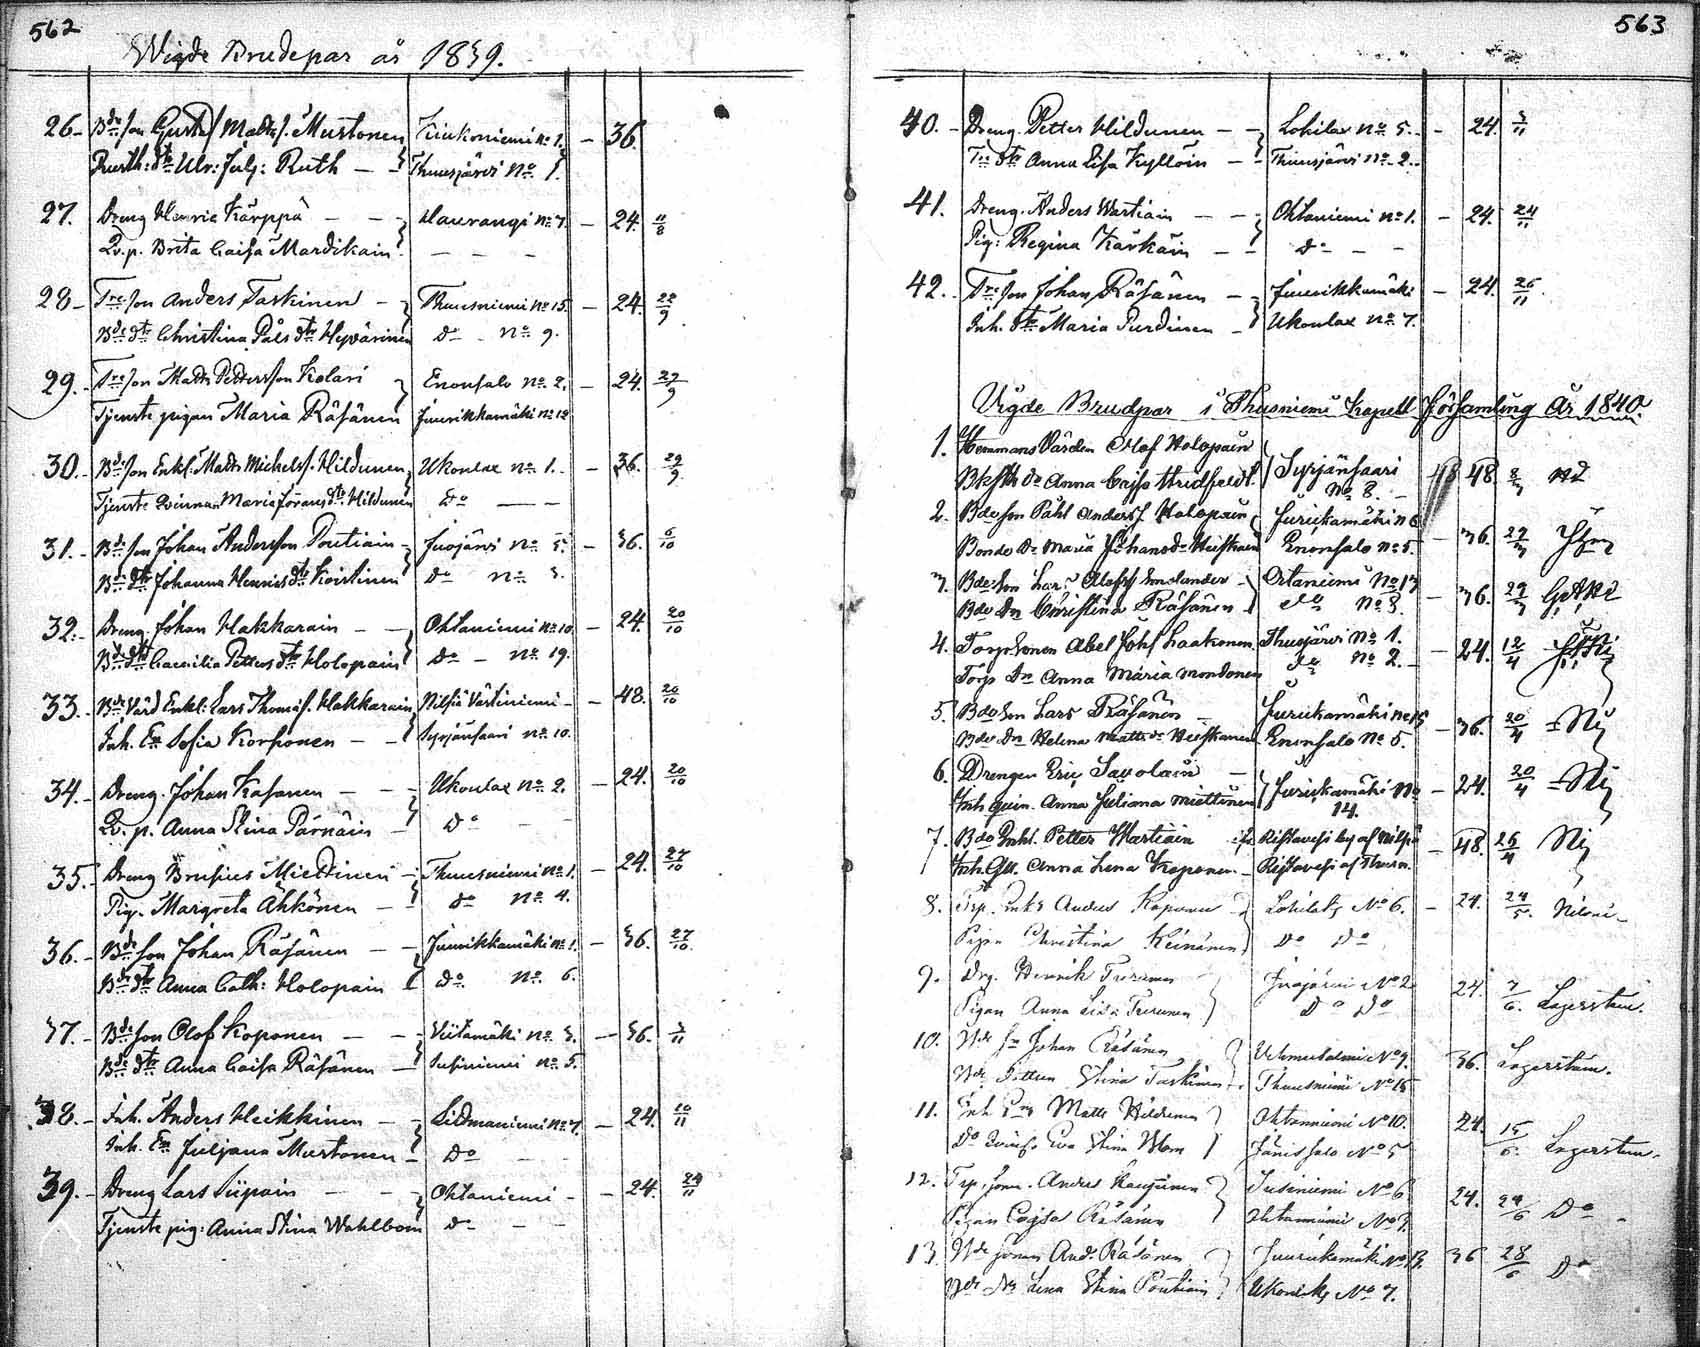 562
Wigde Brudepar år 1839.
26. Bde son Gustaf Matts. Mustonen Kiukoniemi No 1. 36.
Rusth: dtr Ulr: Julj: Ruth Thuusjärvi No 1.
27. Dreng Henric Kärppä Hauranqi No 7. 24. 11/8
Qv. p. Brita Caisa Mardikain
28. Tre son Anders Taskinen Thuusniemi No 15. 24. 22/9
Bde dtr Christina Påls dtr Hyvärinen Do No 9.
29. Tre son Matts Pettersson Kolari Enonsalo No 2. 24. 29/9
Tjenste pigan Maria Räsänen Juurikkamäki No 12
30. Bde son Enkl. Matts Michels. Hildunen Ukonlax No 1. 36. 29/9
Tjenste Qvinnan Maria Görans dtr Hildunen Do
31. Bde son Johan Andersson Poutiain Juojärvi No 5. 36. 6/10
Bde dtr Johanna Henrics dtr Koistinen Do No 3.
32. Dreng. Johan Hakkarain Ohtaniemi No 10. 24. 20/10
Bde dtr Caecilia Petters dtr Holopain Do No 19.
33. Bde Värd Enkl: Lars Thomas. Hakkarain Nilsiä Västiniemi 48. 20/10
Inh. Ea Sofia Korhonen Syrjänsaari No 10.
34. Dreng. Johan Kasanen Ukonlax No 2. 24. 20/10
Qv. p. Anna Stina Pärnäin Do
35. Dreng Brusius Miettinen Thuusniemi No 1. 24. 27/10
Pig. Margreta Ähkönen Do No 4.
36. Bde son Johan Räsänen Juurikkamäki No 1. 36. 27/10
Bde dtr Anna Cath: Holopain Do No 6.
37. Bde son Olof Koponen Viitamäki No 3. 36. 3/11
Bde dtr Anna Caisa Räsänen Susiniemi No 5.
38. Inh. Anders Heikkinen Lidmaniemi No 7. 24. 10/11
Inh. Ea Juljana Mustonen Do
39. Dreng Lars Siipain Ohtaniemi 24. 24/11
Tjenste pig: Anna Stina Wahlbom Do
563
40. Dreng. Petter Hildunen Lohilax No 5. 24. 3/11
Tre dtr Anna Lisa Kyllöin Thuusjärvi No 2.
41. Dreng. Anders Wartiain Ohtaniemi No 1. 24. 24/11
Pig: Regina Kärkäin Do
42. Tre son Johan Räsänen Juurikkamäki 24. 26/11
Inh. dtr Maria Purdinen Ukonlax No 7.
Vigde Brudpar i Thusniemi Kapell Församling År 1840.
1. Hemmans Värden Olof Holopain Syrjänsaari 48 48 8/3
Anna Caisa No 8.
2. Bde son Påhl Anders. Holopain Jurickamäki No 6 36. 29/3
Bonde Dr Maria Johans dr Heiskanen Enonsalo No 5.
3. Bde Son Lars Olofs. Smolander Ortaniemi No 13 36. 29/3
Bde Dr Christina Räsänen do No 3.
4. Torpsonen Abel Johs Laakonen Thusjärvi No 1. 24. 12/4
Torp Dr Anna Maria Mondonen do No 2.
5. Bde Son Lars Räsänen Jurickamäki No 15 36. 20/4
Bde Dr Helena Matts dr Heiskanen Enonsalo No 5.
6. Drengen Eric Savolain Jurickamäki No 24. 20/4
Inh quin. Anna Juliana Miettinen 14.
7. Bde Enkl. Petter Wartiain Ristavesi af Nilsiä 48. 26/4
Inh. Anna Lena Koponen Ristavesi af Thusn.
8. Trp. Enkl Anders Koponen Lohilaks No 6. 24. 24/5.
Pigan Christina Keinänen Do Do
9. Drg. Henrik Turunen Juojärvi No 2 24. 7/6. Lagerstam.
Pigan Anna Lisa Turunen Do Do
10. Bde Sn Johan Räsänen Vehmersalmi No 9. 36. Lagerstam.
Bde Stina Taskinen Thuusniemi No 15
11. Inh Matts Hildunen Ohtaniemi No 10. 24. 15/6. Lagerstam.
Do Eva Stina Jänissalo No 5
12. Trp. sonen Anders Karjunen Susiniemi No 6 24. 24/6 Do
Pigan Cajsa Räsänen Ohtaniemi No 9.
13. Bde sonen And. Räsänen Juurikkamäki No 13. 36 28/6 Do
Bde Dr Lena Stina Poutiain Ukonlaks No 7.